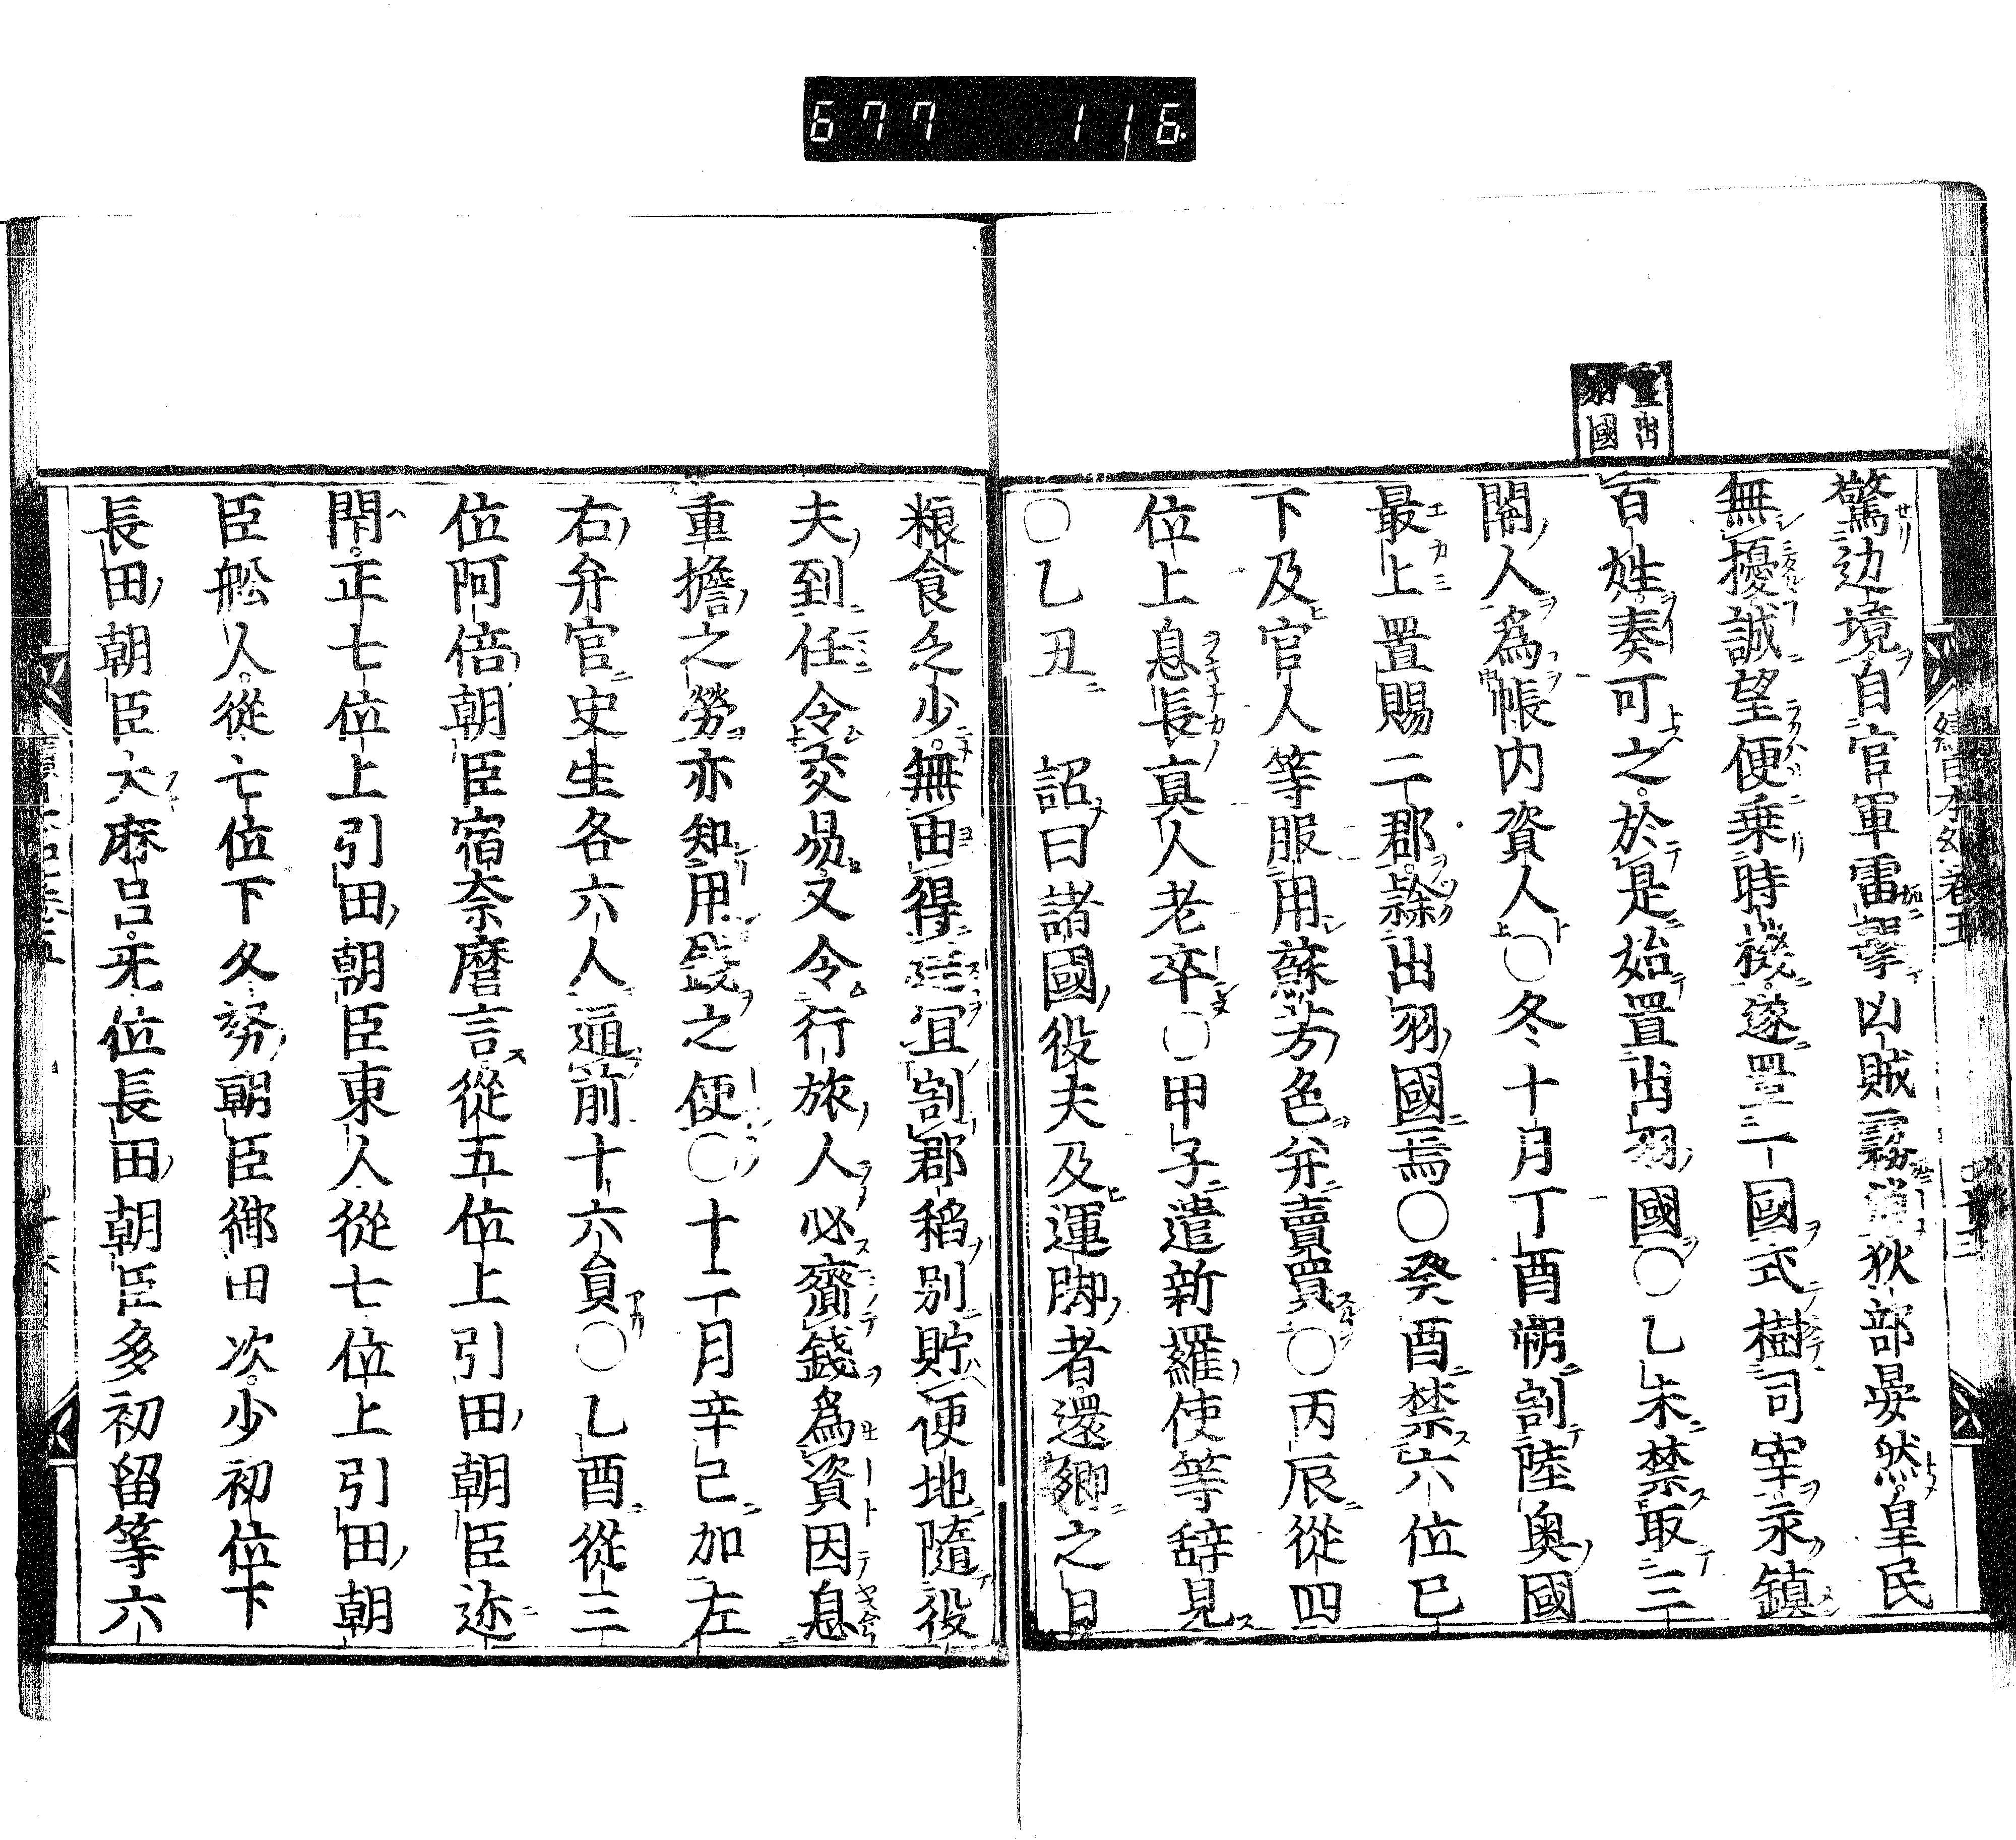 677 116
置出
羽國
驚边境自官軍雷撃凶賊霧消狄部晏然皇民
無擾誠望便乗時機遂置一國式樹司宰永鎮
百姓奏可之於是始置出羽國○乙未禁取三
關人為帳内資人○冬十月丁酉朔割陸奥國
最上置賜二郡隷出羽國焉○癸酉禁六位已
下及官人等服用蘇芳色并賣買○丙辰從四
位上息長真人老卒○甲子遣新羅使等辞見
○乙丑 詔曰諸國役夫及運脚者還郷之日
粮食乏少無由得達宜割郡稻別貯便地隨役
夫到任令交易又令行旅人必齎錢為資因息
重擔之勞亦知用錢之便○十一月辛巳加左
右弁官史生各六人通前十六員○乙酉從三
位阿倍朝臣宿奈麿言從五位上引田朝臣迩
閇正七位上引田朝臣東人從七位上引田朝
臣舩人從七位下久努朝臣御田次少初位下
長田朝臣大麻呂无位長田朝臣多初留等六
續日本紀卷五